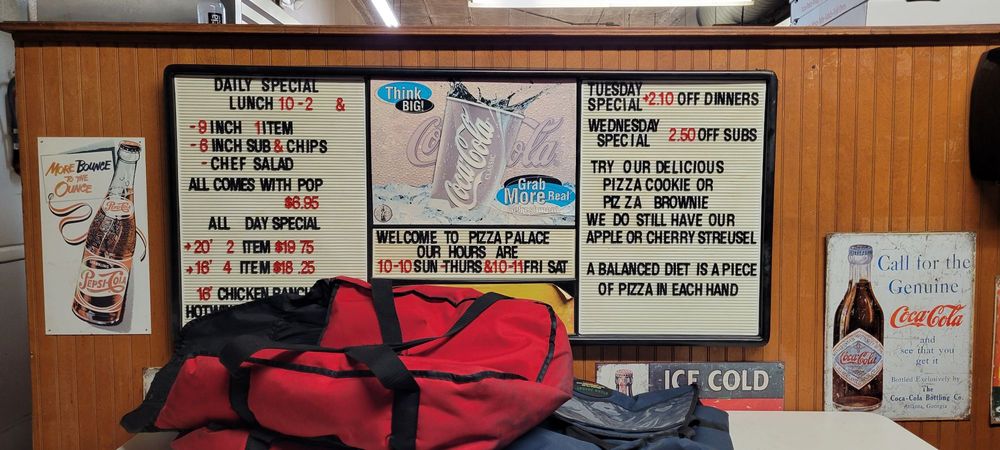 DAILY SPECIAL
LUNCH 10-2 &
-9 INCH 1 ITEM
-6 INCH SUB & CHIPS
-CHEF SALAD
ALL COMES WITH POP
$6.95
ALL DAY SPECIAL
+20' 2 ITEM $19 75
+16' 4 ITEM $18 .25
16' CHICKEN RANCH
Think
BIG!
Coca-Cola
Coca-Cola
Grab
More Real
WELCOME TO PIZZA PALACE
OUR HOURS ARE
10-10 SUN-THURS & 10-11 FRI SAT
TUESDAY
SPECIAL +2.10 OFF DINNERS
WEDNESDAY
SPECIAL 2.50 OFF SUBS
TRY OUR DELICIOUS
PIZZA COOKIE OR
PIZZA BROWNIE
WE DO STILL HAVE OUR
APPLE OR CHERRY STREUSEL
A BALANCED DIET IS A PIECE
OF PIZZA IN EACH HAND
MORE BOUNCE
TO THE
OUNCE
Pepsi-Cola
PEPSI-COLA
Call for the
Genuine
Coca-Cola
and
see that you
get it
Bottled Exclusively by
The
Coca-Cola Bottling Co.
Atlanta, Georgia
Coca-Cola
ICE COLD